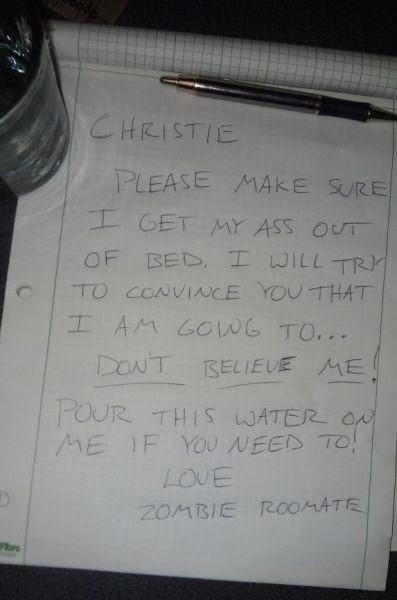 CHRISTIE
PLEASE MAKE SURE
I GET MY ASS OUT
OF BED. I WILL TRY
TO CONVINCE YOU THAT
I AM GOING TO...
DON'T BELIEVE ME!
POUR THIS WATER ON
ME IF YOU NEED TO!
LOVE
ZOMBIE ROOMATE